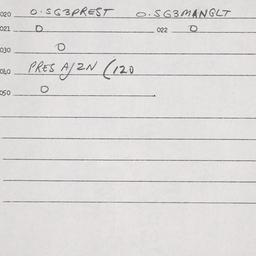 020 O.SG3PREST O.SG3MANGLT
021 O 022 O
030 O
040 PRES A/2N (120
050 O